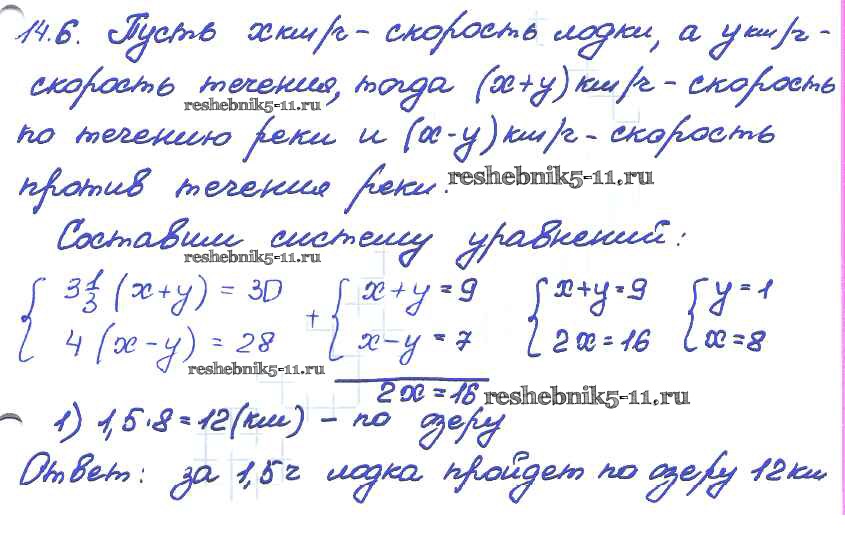 14.6. Пусть x км/ч - скорость лодки, а y км/ч -
скорость течения, тогда (x+y) км/ч - скорость
reshebnik5-11.ru
по течению реки и (x-y) км/ч - скорость
против течения реки.
reshebnik5-11.ru
Составим систему уравнений:
reshebnik5-11.ru
{ 3 1/3 (x+y) = 30 + { x+y = 9 { x+y=9 { y=1
4 (x-y) = 28 x-y = 7 2x=16 x=8
reshebnik5-11.ru
2x=16
reshebnik5-11.ru
1) 1,5·8=12(км) - по озеру
Ответ: за 1,5ч лодка пройдет по озеру 12км